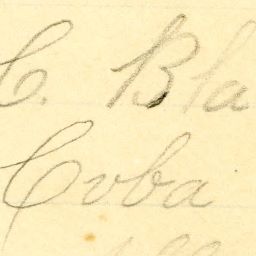 C. Bla
Coba